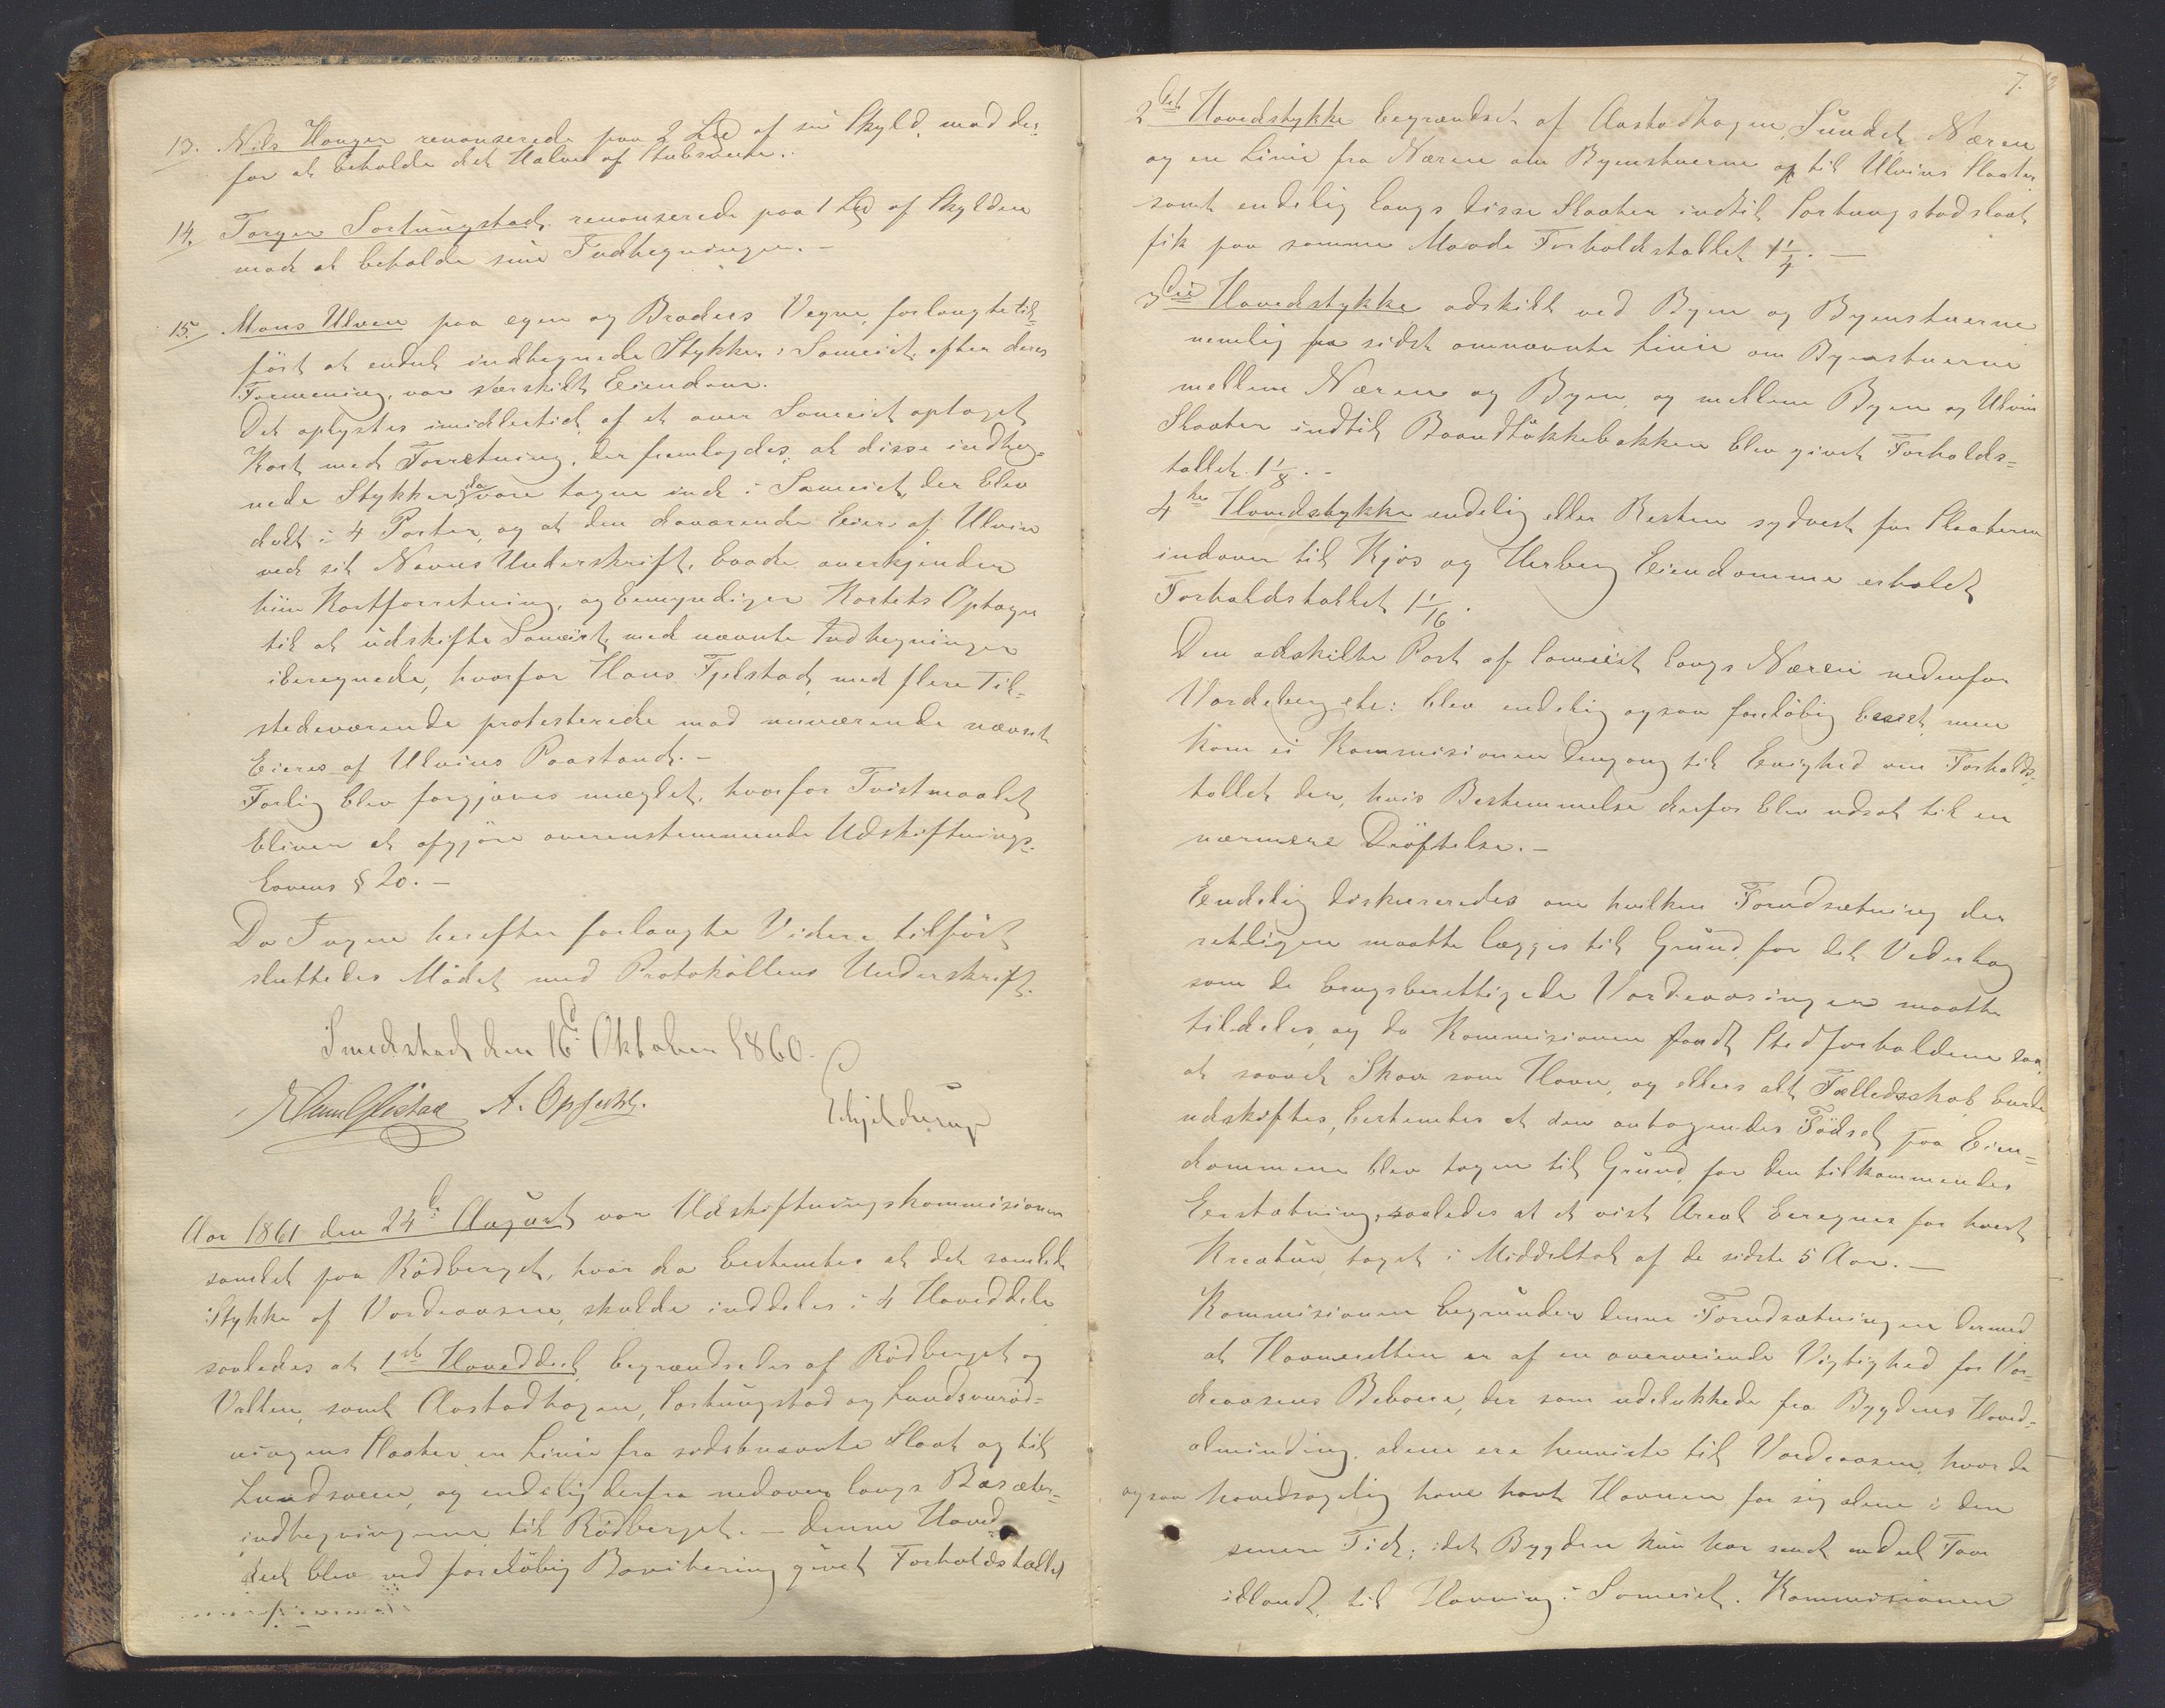 13. Nils Hauger renonserede paa 2 Lod af sin Skyld, mod der-
for at beholde det Halve af Stubsveen.
14. Torger Sortungstad renonserede paa 1 Lod af Skylden
mod at beholde sine Indhegninger. –
15. Mons Ulven paa egen og Broders Vegne, forlangte til-
ført at endeel indhegnede Stykker i Sameiet, efter deres
Formening, var særskilt Eiendom.
Det oplystes imidlertid, af et over Sameiet optaget
Kort med Forretning, der fremlagdes, at disse indheg-
nede Stykker da vare tagne ind i Sameiet, der blev
delt i 4 Parter, og at den daværende Eier af Ulvin
ved sit Navns Underskrift, baade anerkjender
hiin Kartforretning, og bemyndiger Kartets Optager
til at udskifte Sameiet, med nævnte Indhegninger
iberegnede, hvorfor Hans Fjelstad med flere Til-
stedeværende protesterede mod nuværende nævnt
Eieres af Ulvins Paastand. –
Forlig blev forgjæves mæglet, hvorfor Tvistmaalet
bliver at afgjøre overenstemmende Udskiftnings-
lovens § 20. –
Da Ingen herefter forlangte Videre tilført
sluttedes Mødet med Protokollens Underskrift.
Smedstad den 16d Oktober 1860.
A. Opsahl.
Schjelderup
Aar 1861 den 24d August var Udskiftningskommisionen
samlet paa Rödberget, hvor da bestemtes at det samlede
Stykke af Vordeaasen, skulde inddeles i 4 Hoveddele
saaledes at 1ste Hoveddeel begrændsedes af Rödberget og
Vatten, samt Aastadhagen, Sortungstad og Lundsvurød-
ningens Slaater, en Linie fra sidstnævnte Slaat og til
Lundsveen, og endelig derfra nedover langs Basæter-
indhegningerne til Rödberget. – Denne Hoved-
deel blev ved foreløbig Bonitering givet Forholdstallet
7.
2det Hovedstykke begrændset af Aastadhagen, Sundet, Næren
og en Linie fra Næren om Byenstuerne op til Ulvins Slaater
samt endelig langs disse Slaater indtil Sortungstadslaat
fik paa samme Maade Forholdstallet 1 1/4. –
3die Hovedstykke adskilt ved Byen og Byenstuerne
nemlig fra sidst omnævnte Linie om Byenstuerne
mellem Næren og Byen, og mellem Byen og Ulvin
Slaater indtil Baandløkkebakken blev givet Forholds-
tallet 1 1/8. –
4de Hovedstykke endelig eller Resten sydvest for Slaaterne
indover til Kjos og Herberg Eiendomme erholdt
Forholdstallet 1 1/16.
Den adskilte Part af Sameiet langs Næren nedenfor
Vordeberg etc: blev endelig ogsaa foreløbig beseet, men
kom ei Kommisionen dengang til Enighed om Forholds-
tallet der, hvis Bestemmelse derfor blev udsat til en
nærmere Drøftelse. –
Endelig diskuteredes om hvilken Forudsætning der
rettligen maatte lægges til Grund, for det Vederlag
som de brugsberettigede Vordeaasinger maatte
tildeles, og da Kommisionen fandt Stedforholdene saa,
at saavel Skov som Havn, og ellers alt Fælledsskab burde
udskiftes, bestemtes at den antagendes Fødsel paa Eien-
dommene blev tagen til Grund, for den tilkommendes
Erstatning, saaledes at et vist Areal beregnes for hvert
Kreatur, taget i Middeltal af de sidste 5 Aar. –
Kommisionen begrunder denne Forudsætningen dermed
at Havneretten er af en overveiende Vigtighed for Vor-
deaasens Beboere, der som udelukkede fra Bygdens Hoved-
alminding, alene ere henviste til Vordeaasen, hvor de
ogsaa hovedsagelig have havt Havnen for sig alene i den
senere Tid; idet Bygden kun har sendt endeel Faar
iblandt, til Havning i Sameiet. Kommisionen